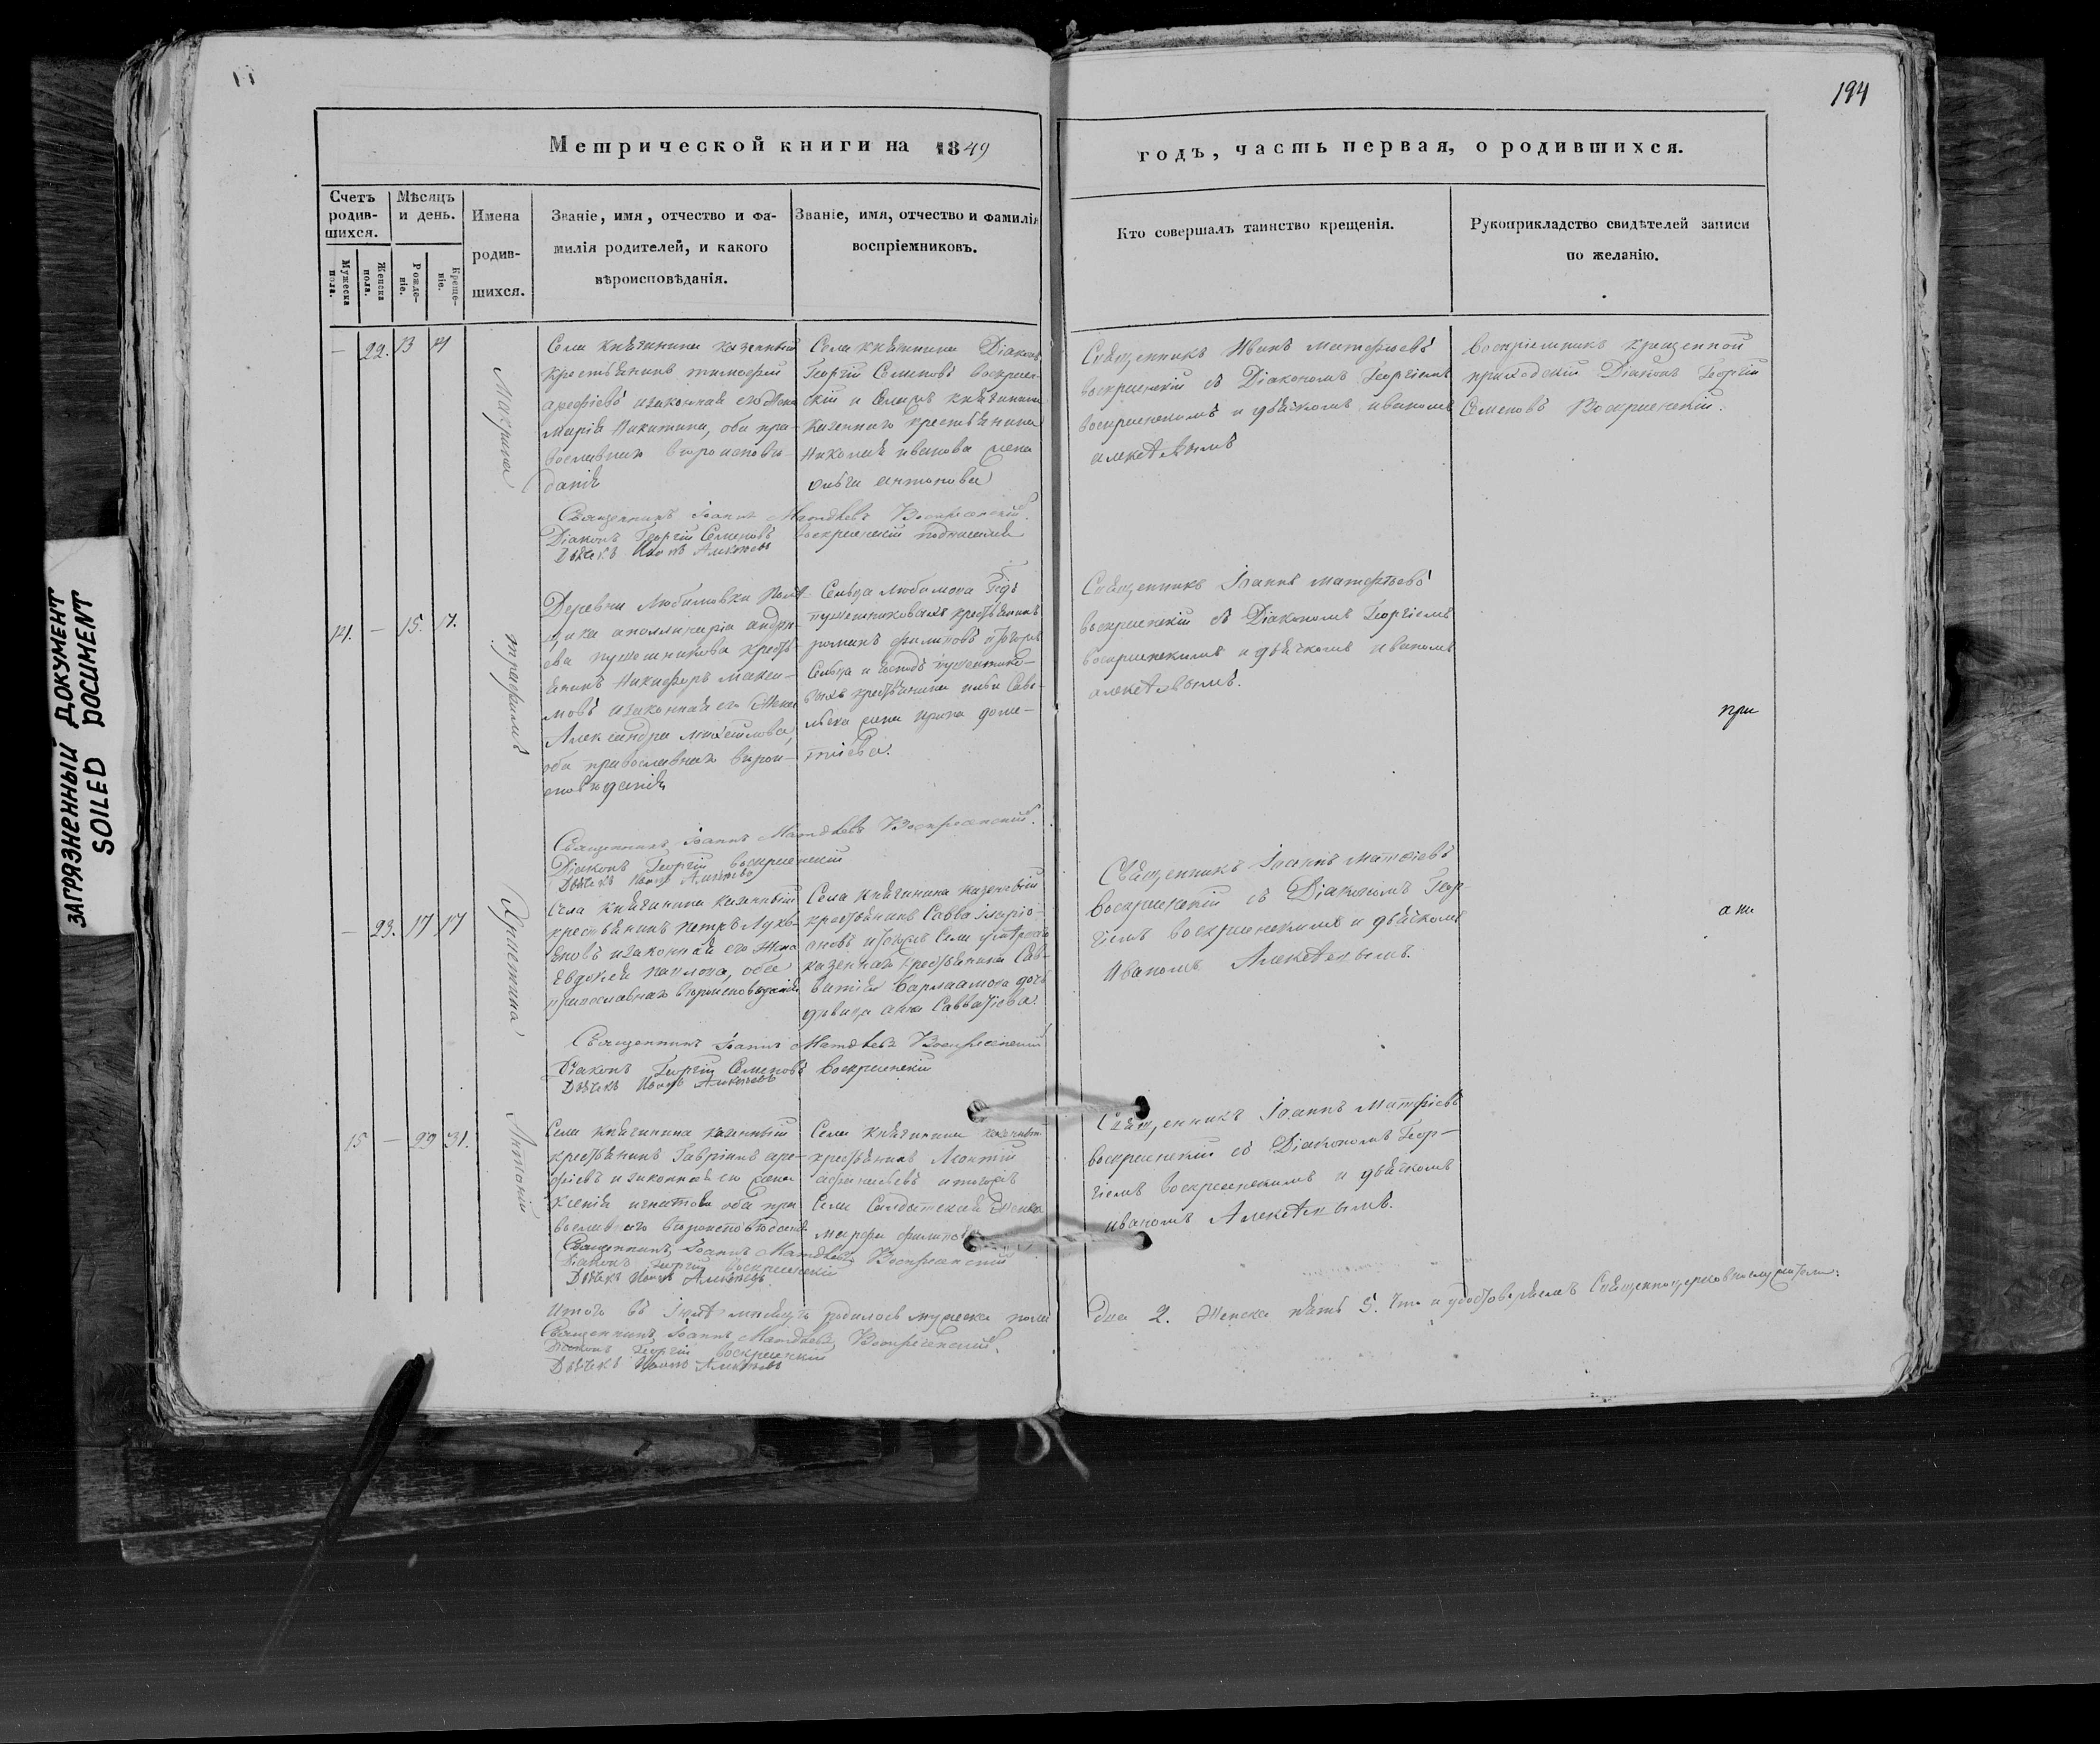 194
Метрической книги на 1849
годъ, часть первая, о родившихся.
Счетъ родив-шихся.
Мѣсяцъ и день.
Имена родив-шихся.
Званіе, имя, отчество и фа-
милія родителей, и какого
вѣроисповѣданія.
Званіе, имя, отчество и фамилія
воспріемниковъ.
Кто совершалъ таинство крещенія.
Рукоприкладство свидѣтелей записи
по желанію.
Мужеска пола.
Женска пола.
Рожде-ніе.
Креще-ніе.
— 22. 13 14
Макрина
Села Княгинина казенный
крестьянинъ Тимофей
Арефьевъ и законная его жена
Марія Никитина, оба пра-
вославнаго вѣроисповѣ-
данія
Села Княгинина Діаконъ
Георгій Семеновъ Воскресен-
скій и Села Княгинина
казеннаго крестьянина
Николая Иванова жена
Ольга Антонова
Священникъ Иванъ Матфьевъ
Воскресенскій съ Діакономъ Георгіемъ
Воскресенскимъ и дьячкомъ Иваномъ
Воспріемникъ крещенной
приходскій Діаконъ Георгій
Семеновъ Воскресенскій.
Священникъ Іоаннъ Матфѣевъ Воскресенскій.
Діаконъ Георгій Семеновъ Воскресенскій
Дьячекъ Иванъ
14. — 15. 17.
Трофимъ
Деревни Любимовки
Аполлинарія Андре-
ева Пушешникова кресть-
янинъ Никифоръ Макси-
мовъ и законная его жена
Александра
оба православнаго вѣрои-
споведанія
Сельца Любимова Гдъ
Пушешниковыхъ крестьянинъ
Романъ Филиповъ
Сельца и Господъ Пушешнико-
выхъ крестьянина
жена Ирина Доме-
тіева.
Священникъ Іоаннъ Матфьевъ
Воскресенскій съ Діакономъ Георгіемъ
Воскресенскимъ и дьячкомъ Иваномъ
при
Священникъ Іоаннъ Матфѣевъ Воскресенскій.
Діаконъ Георгій Воскресенскій
Дьячекъ Иванъ
— 23. 17 17
Села Княгинина казенный
крестьянинъ Петръ Лукья-
новъ и законная его жена
Евдокія Павлова, оба
православнаго вѣроисповеданія
Села Княгинина казенный
крестьянинъ Савва Иларіо-
новъ Села
казеннаго крестьянина Сав-
ватія Варлаамова дочь
дѣвица Анна Савватіева.
Священникъ Іоаннъ Матфіевъ
Воскресенскій съ Діакономъ Геор-
гіемъ Воскресенскимъ и дьячкомъ
Иваномъ
Священникъ Іоаннъ Матфѣевъ Воскресенскій
Діаконъ Георгій Семеновъ Воскресенскій
Дьячекъ Иванъ
15 — 29 31.
Села Княгинина казенный
крестьянинъ Гавріилъ Аре-
фіевъ и законная его жена
Ксенія Игнатова оба пра-
вославнаго вѣроисповѣданія
Села Княгинина казенный
крестьянинъ Леонтій
Села Солдатская жена
Марфа Филипова
Священникъ Іоаннъ Матфіевъ
Воскресенскій съ Діакономъ Геор-
гіемъ Воскресенскимъ и дьячкомъ
Иваномъ
Священникъ Іоаннъ Матфѣевъ Воскресенскій
Діаконъ Георгій Воскресенскій
Дьячекъ Иванъ
Итого въ мѣсяцѣ родилось мужеска пола
два 2. Женска пять 5. Что и удостовѣряемъ Священноцерковнослужители:
Священникъ Іоаннъ Матфѣевъ Воскресенскій.
Діаконъ Георгій Воскресенскій
Дьячекъ Иванъ
ЗАГРЯЗНЕННЫЙ ДОКУМЕНТ
SOILED DOCUMENT